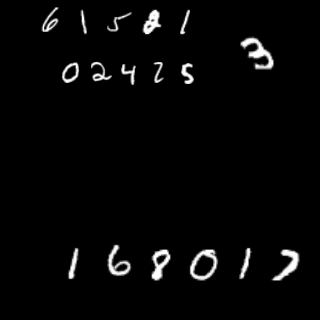 61521
3
02425
168017